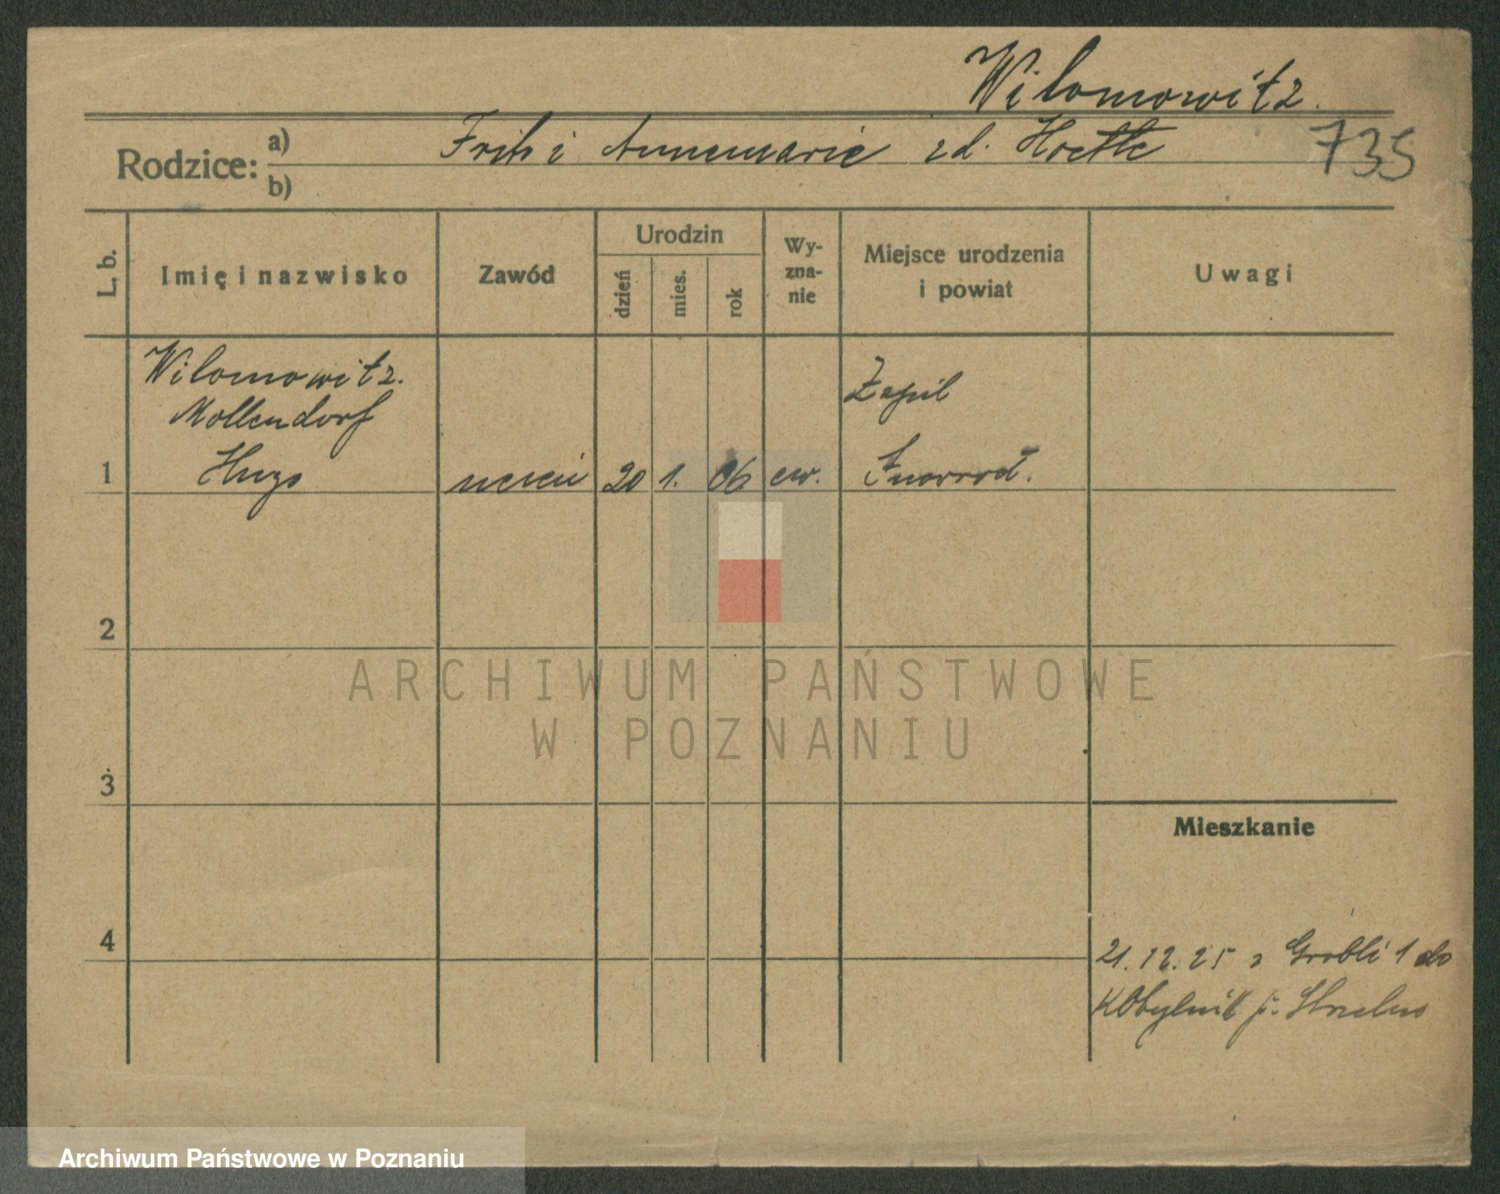 Wilomowitz.
Rodzice: a) b)
Fritz i Annemarie zd.
735
L. b.
Imię i nazwisko
Zawód
Urodzin
dzień
mies.
rok
Wy-
zna-
nie
Miejsce urodzenia
i powiat
Uwagi
Wilomowitz.
Mollendorf
1 Hugo uczeń 20 1. 06 ew.
2
3
4
Mieszkanie
21.12.25 z Grobli 1 do
Kobylnik p. Strzelno
ARCHIWUM PAŃSTWOWE
W POZNANIU
Archiwum Państwowe w Poznaniu